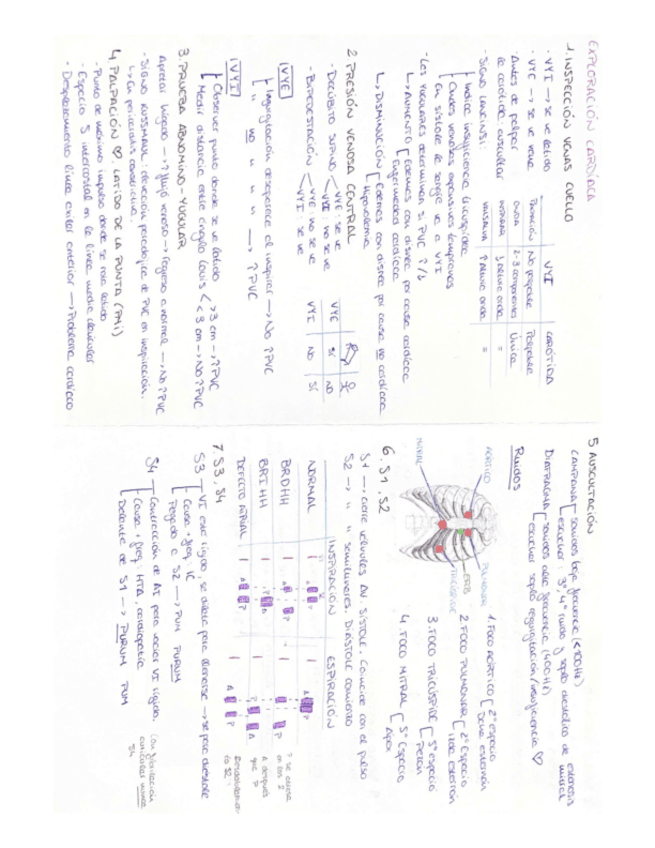 EXPLORACIÓN CARDÍACA
1. INSPECCIÓN VENAS CUELLO
· VYI → se ve latido
· VYE → se ve vena
· Antes de palpar
la carótida, auscultar
VYI CARÓTIDA
PALPACIÓN No palpable Palpable
ONDA 2-3 componentes Única
INSPIRAR ↓ altura onda =
VALSALVA ↑ altura onda =
· SIGNO LANCINSI:
Indica insuficiencia tricuspídea
Ondas venosas expansivas tempranas
En sístole la sangre va a VYI
- Las yugulares determinan si PVC ↑/↓
↳ AUMENTO Edemas con disnea por causa cardíaca
Enfermedad cardíaca
↳ DISMINUCIÓN Edemas con disnea por causa no cardíaca
Hipovolemia
2. PRESIÓN VENOSA CENTRAL
- DECÚBITO SUPINO VYE: se ve
VYI: no se ve
- BIPEDESTACIÓN VYE: no se ve
VYI: se ve
VYE SÍ NO
VYI NO SÍ
VYE
Ingurgitación desaparece al inspirar → No ↑PVC
" no " " " → ↑PVC
VYI
Observar punto donde se ve latido
Medir distancia entre ángulo Louis >3 cm → ↑PVC
<3 cm → No ↑PVC
3. PRUEBA ABDOMINO-YUGULAR
Apretar hígado → ↑ flujo venoso → Regresa a normal → No ↑PVC
- SIGNO KUSSMAUL: elevación paradójica de PVC en inspiración.
↳ En pericarditis constrictiva.
4. PALPACIÓN ♡. LATIDO DE LA PUNTA (PMI)
· Punto de máximo impulso donde se nota latido
· Espacio 5 intercostal en la línea media clavicular
· Desplazamiento línea axilar anterior → Problema cardíaco
5 AUSCULTACIÓN
CAMPANA sonidos baja frecuencia (<100Hz)
escuchar: 3º, 4º ruido y soplo diastólico de estenosis mitral
DIAFRAGMA sonidos alta frecuencia (400Hz)
escuchar soplo regurgitación/insuficiencia ♡
Ruidos
AÓRTICO
PULMONAR
ERB
TRICÚSPIDE
MITRAL
1. FOCO AÓRTICO 2º espacio
Dcha esternón
2. FOCO PULMONAR 2º Espacio
izda esternón
3. FOCO TRICÚSPIDE 5º espacio
4. FOCO MITRAL 5º Espacio
Apex
6. S1, S2
S1 → cierre válvulas AV. SÍSTOLE. Coincide con el pulso
S2 → " " semilunares. DIÁSTOLE comienzo
INSPIRACIÓN ESPIRACIÓN
NORMAL
BRDHH
BRIHH
DEFECTO ATRIAL
A P
A P
P A
A P
A después
que P
7. S3, S4
S3 VI está rígido, se dilata para llenarse → se pare diástole
Causa + freq: IC
Pegado a S2 → PUM PURUM
S4 Contracción de AI para vaciar VI rígido.
Causa + freq: HTA, cardiopatía
Delante de S1 → PURUM PUM
Con fibrilación
auricular nunca
S4